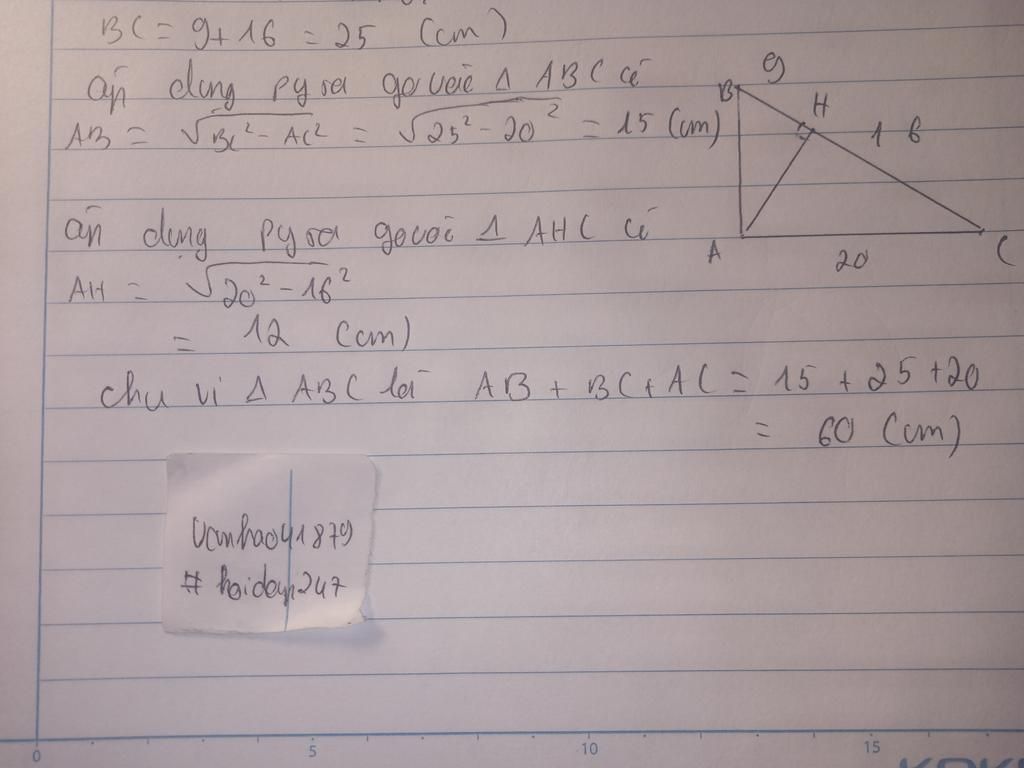 BC = 9+16 = 25 (cm)
áp dụng pytago với Δ ABC có
AB = √BC² - AC² = √25² - 20² = 15 (cm)
B 9
H
1 6
áp dụng pytago với Δ AHC có
A 20 C
AH = √20² - 16²
= 12 (cm)
chu vi Δ ABC là AB + BC + AC = 15 + 25 + 20
= 60 (cm)
Vanhao41879
# hoidap247
0 5 10 15